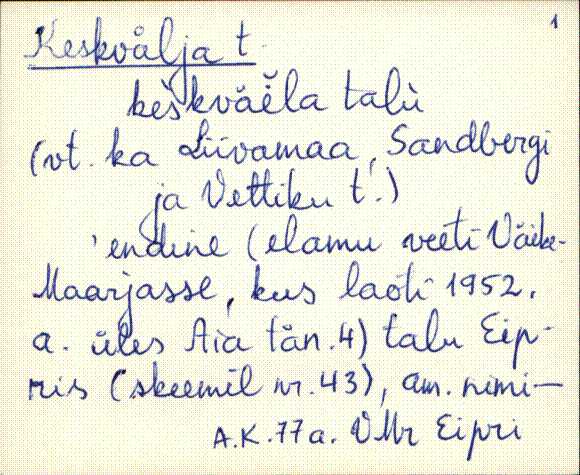 1
Keskvälja t.
kèskväĕla talù
(vt. ka Liivamaa, Sandbergi
ja Vettiku t.)
'endine (elamu veeti Väike-
Maarjasse, kus laoti 1952.
a. üles Aia tän. 4) talu Eip-
ris (skeemil nr. 43), am. nimi—
A.K. 77 a. VMr Eipri